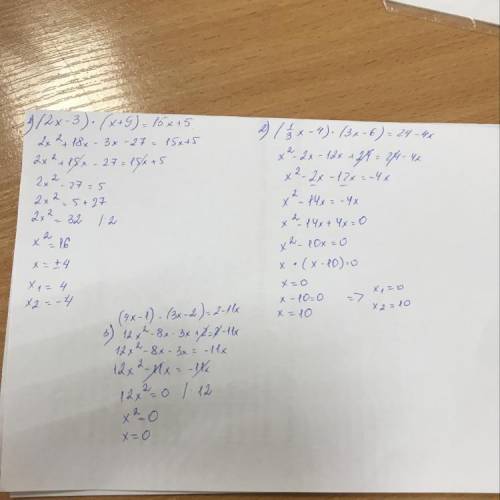 1) (2x-3)·(x+9)=15x+5
2x²+18x-3x-27=15x+5
2x²+15x-27=15x+5
2x²-27=5
2x²=5+27
2x²=32 /2
x²=16
x=±4
x₁=4
x₂=-4
2) (1/3x-4)·(3x-6)=24-4x
x²-2x-12x+24=24-4x
x²-2x-12x=-4x
x²-14x=-4x
x²-14x+4x=0
x²-10x=0
x·(x-10)=0
x=0
x-10=0 => x₁=0
x=10 x₂=10
3) (4x-1)·(3x-2)=2-11x
12x²-8x-3x+2=2-11x
12x²-8x-3x=-11x
12x²-11x=-11x
12x²=0 /·12
x²=0
x=0